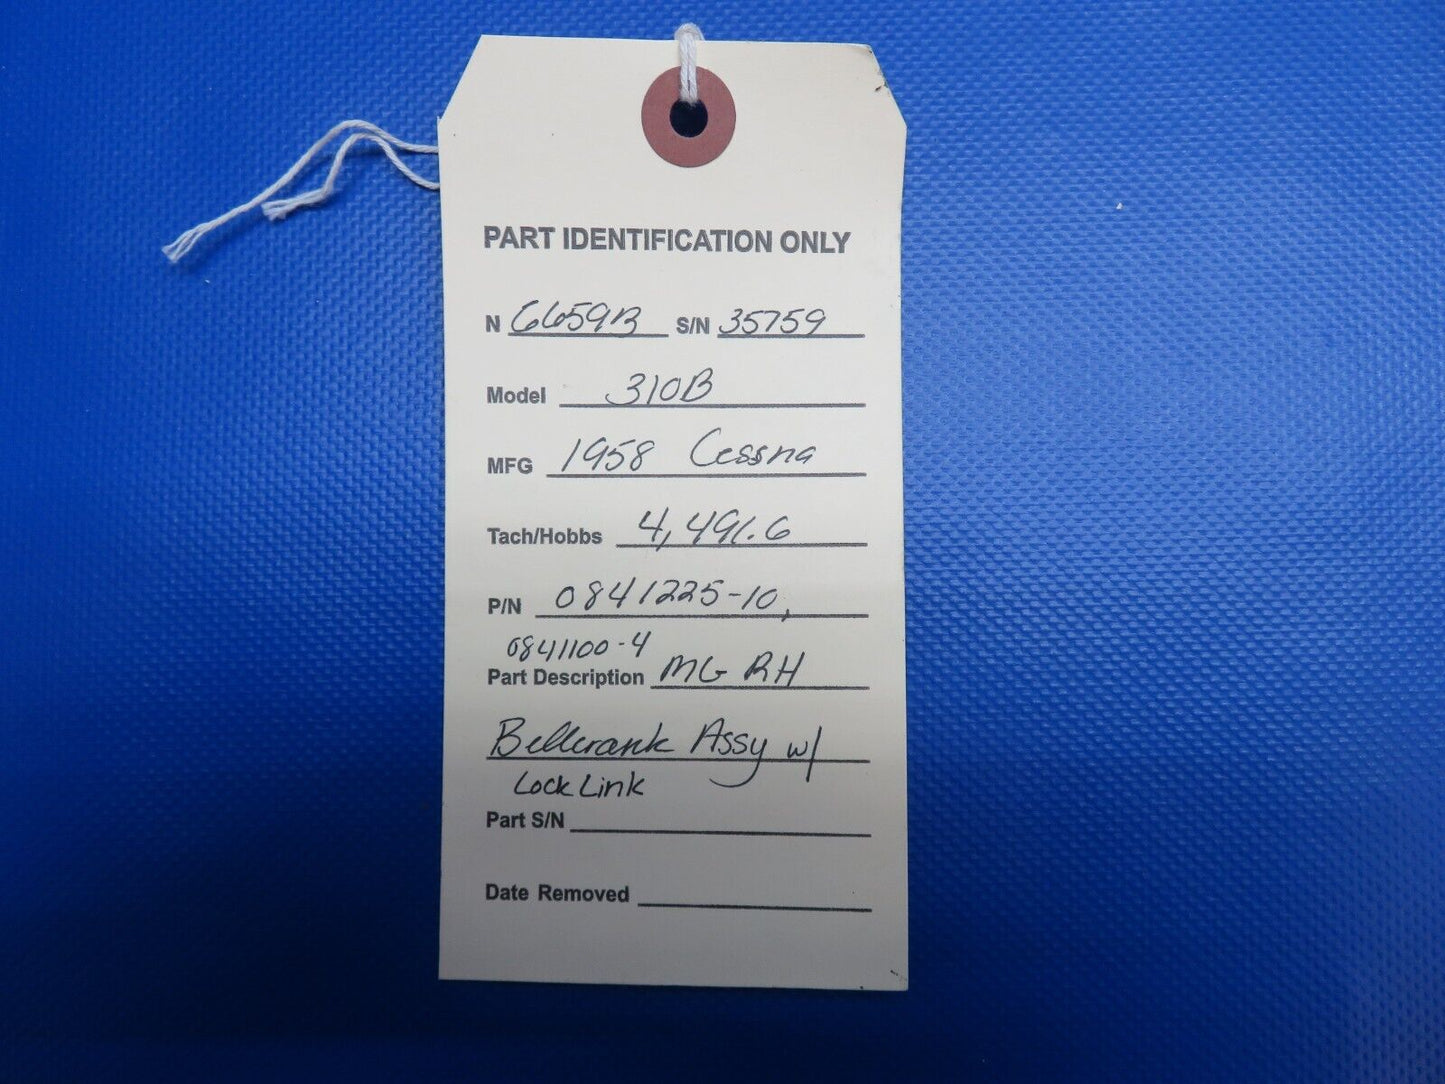 PART IDENTIFICATION ONLY
N 6659B S/N 35759
Model 310B
MFG 1958 Cessna
Tach/Hobbs 4,491.6
P/N 0841225-10,
0841100-4
Part Description MG RH
Bellcrank Assy w/
Lock Link
Part S/N
Date Removed